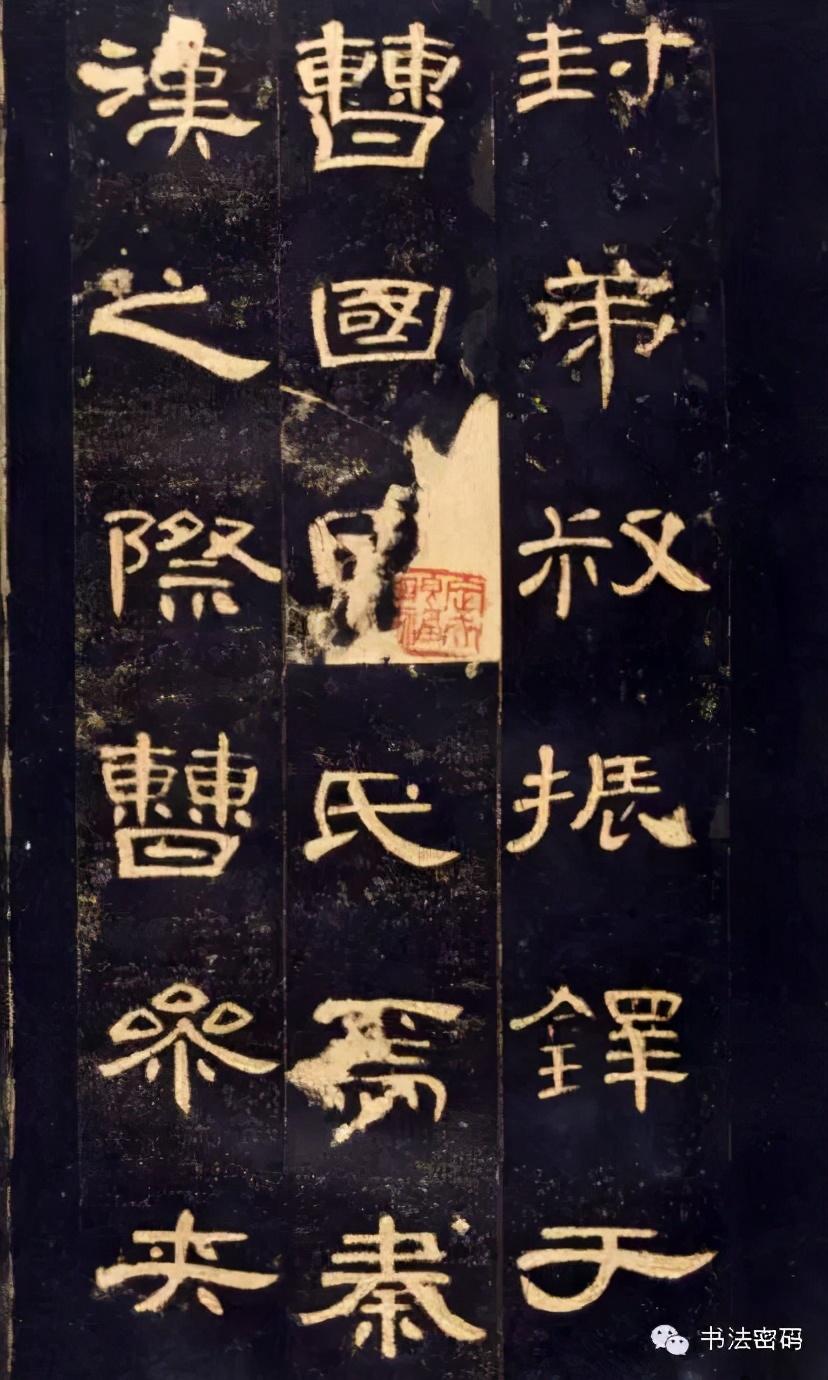 封弟叔振鐸于
曹國氏焉秦
漢之際曹參夾
书法密码